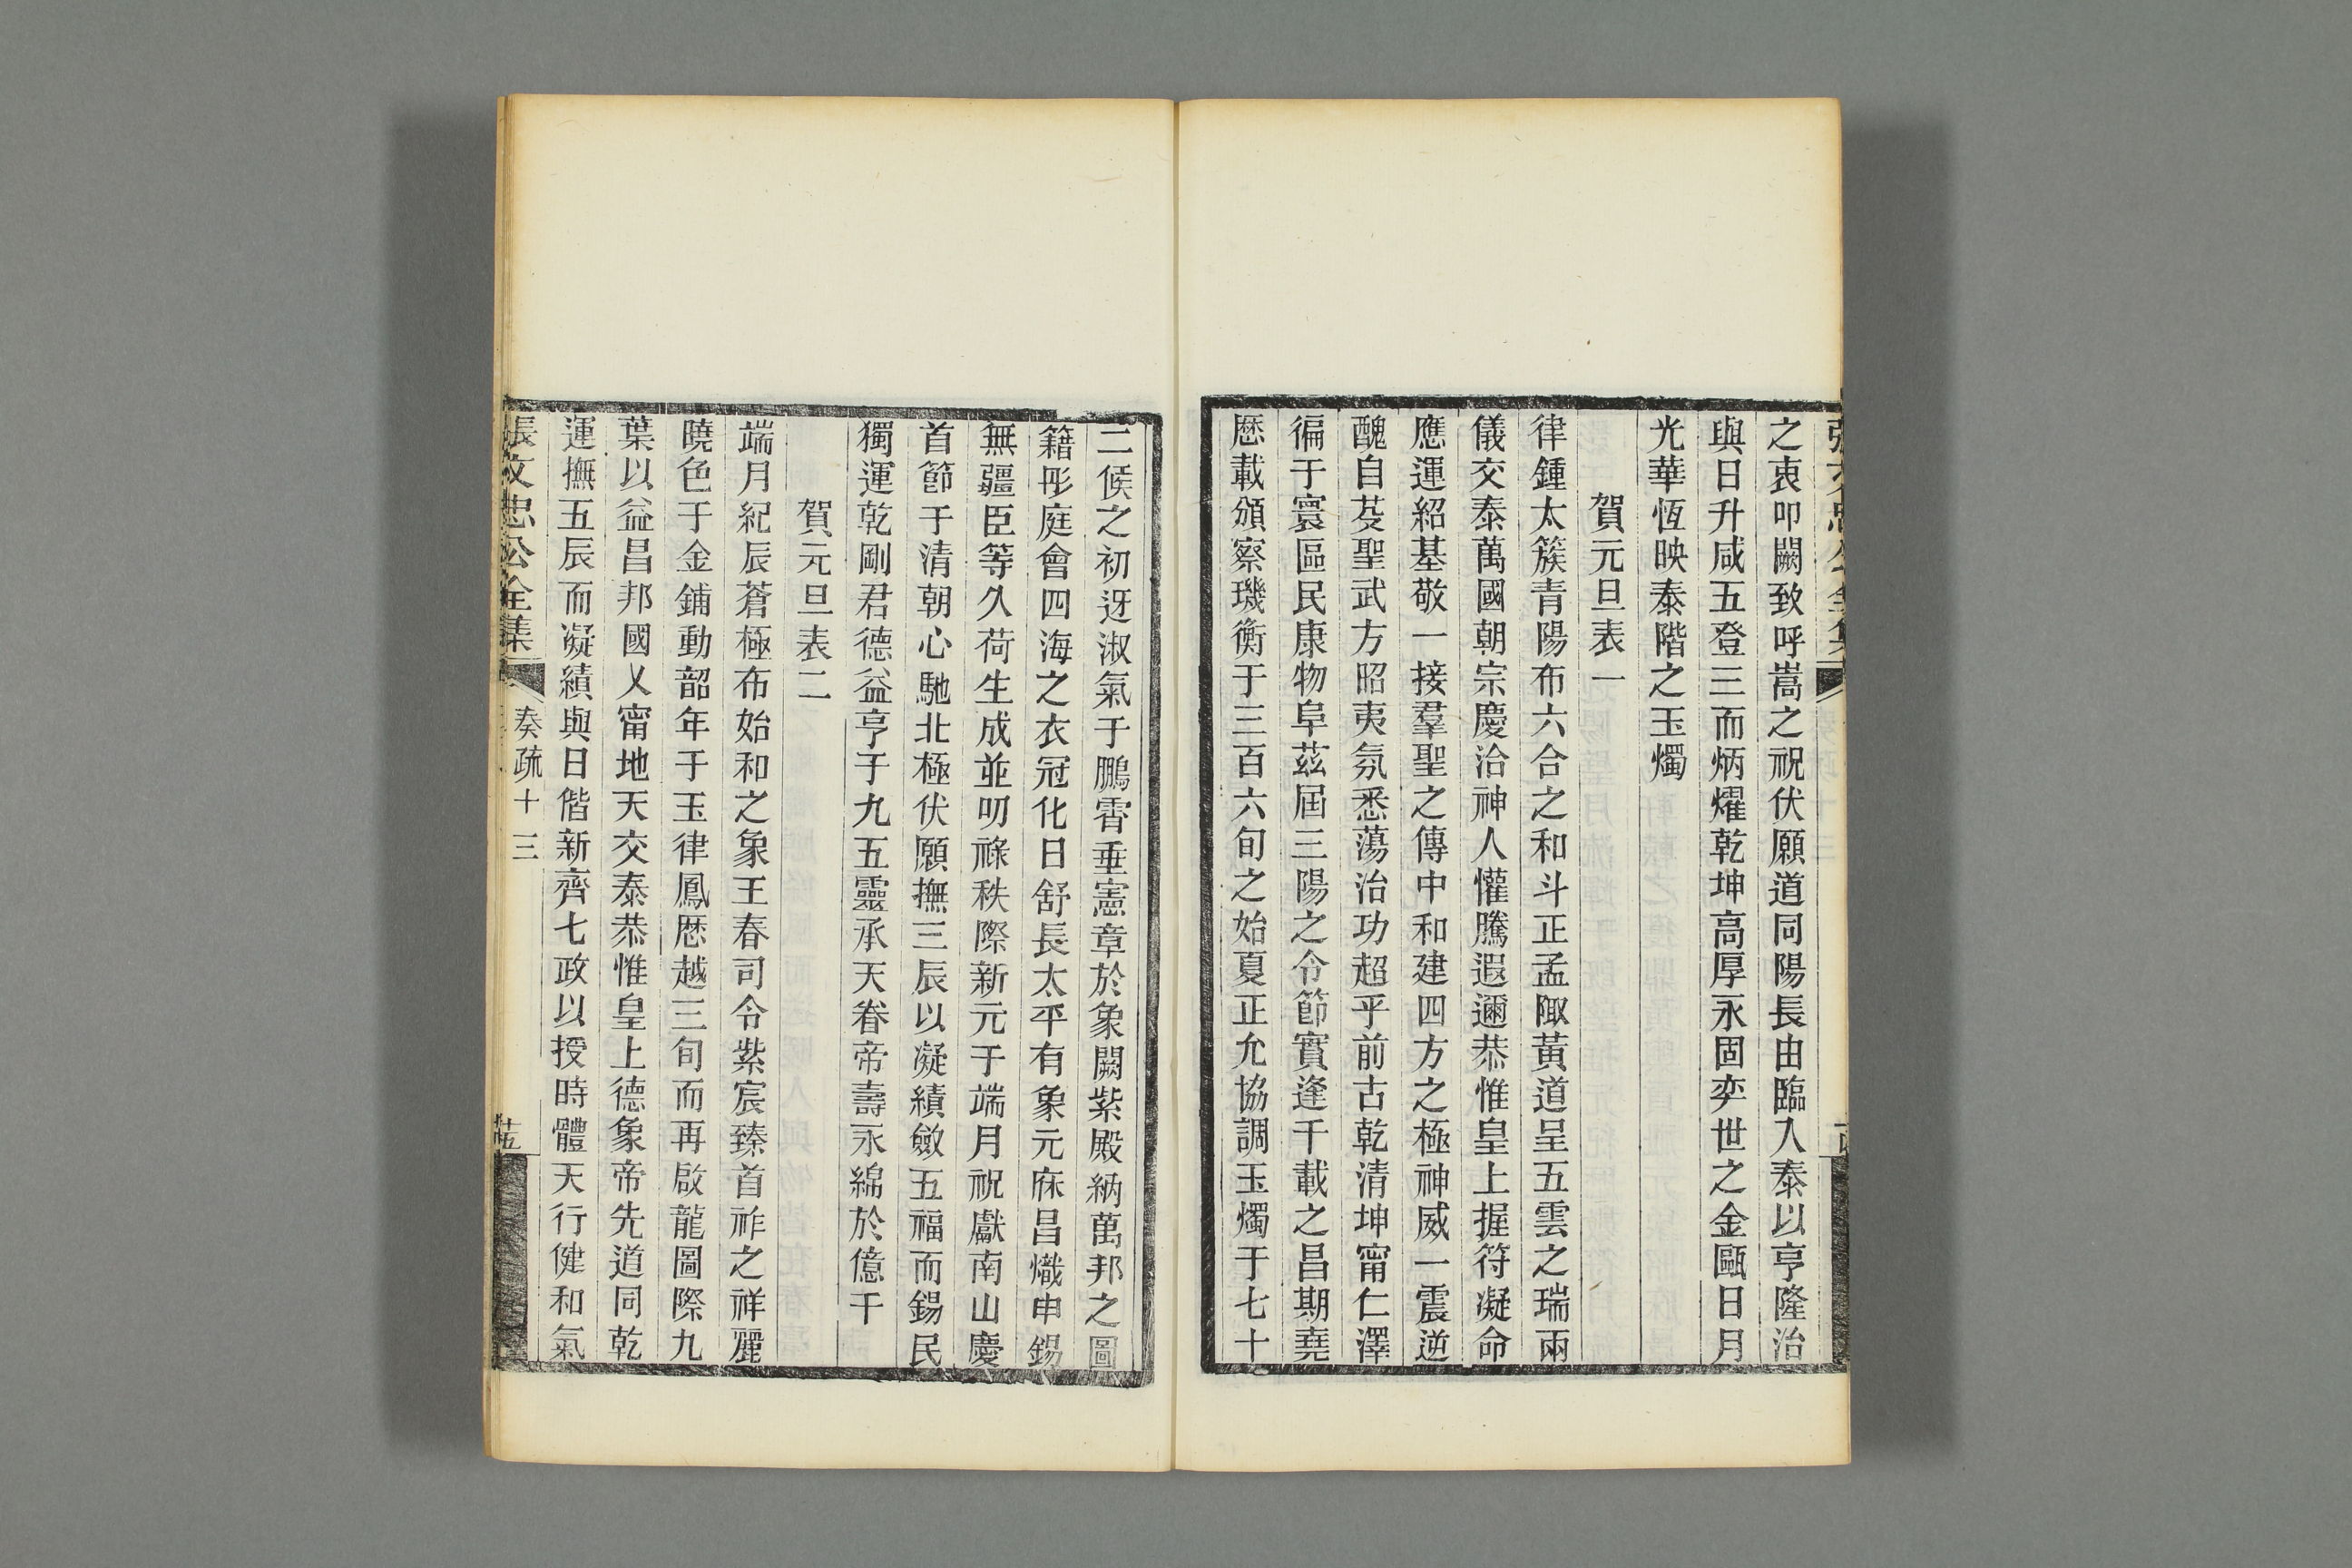 之衷叩闕致呼嵩之祝伏願道同陽長由臨入泰以亨隆治
與日升咸五登三而炳燿乾坤高厚永固奕世之金甌日月
光華恆映泰階之玉燭
賀元旦表一
律鍾太簇青陽布六合之和斗正孟陬黃道呈五雲之瑞兩
儀交泰萬國朝宗慶洽神人懽騰遐邇恭惟皇上握符凝命
應運紹基敬一接羣聖之傳中和建四方之極神威一震逆
醜自芟聖武方昭夷氛悉蕩治功超乎前古乾清坤甯仁澤
徧于寰區民康物阜茲屆三陽之令節實逢千載之昌期堯
厯載頒察璣衡于三百六旬之始夏正允協調玉燭于七十
二候之初迓淑氣于鵬霄垂憲章於象闕紫殿納萬邦之圖
籍彤庭會四海之衣冠化日舒長太平有象元庥昌熾申錫
無疆臣等久荷生成並叨祿秩際新元于端月祝獻南山慶
首節于清朝心馳北極伏願撫三辰以凝績斂五福而錫民
獨運乾剛君德益亨于九五靈承天眷帝壽永綿於億千
賀元旦表二
端月紀辰蒼極布始和之象王春司令紫宸臻首祚之祥麗
曉色于金鋪動韶年于玉律鳳厯越三旬而再啟龍圖際九
葉以益昌邦國乂甯地天交泰恭惟皇上德象帝先道同乾
運撫五辰而凝績與日偕新齊七政以授時體天行健和氣
張文忠公全集
奏疏十三